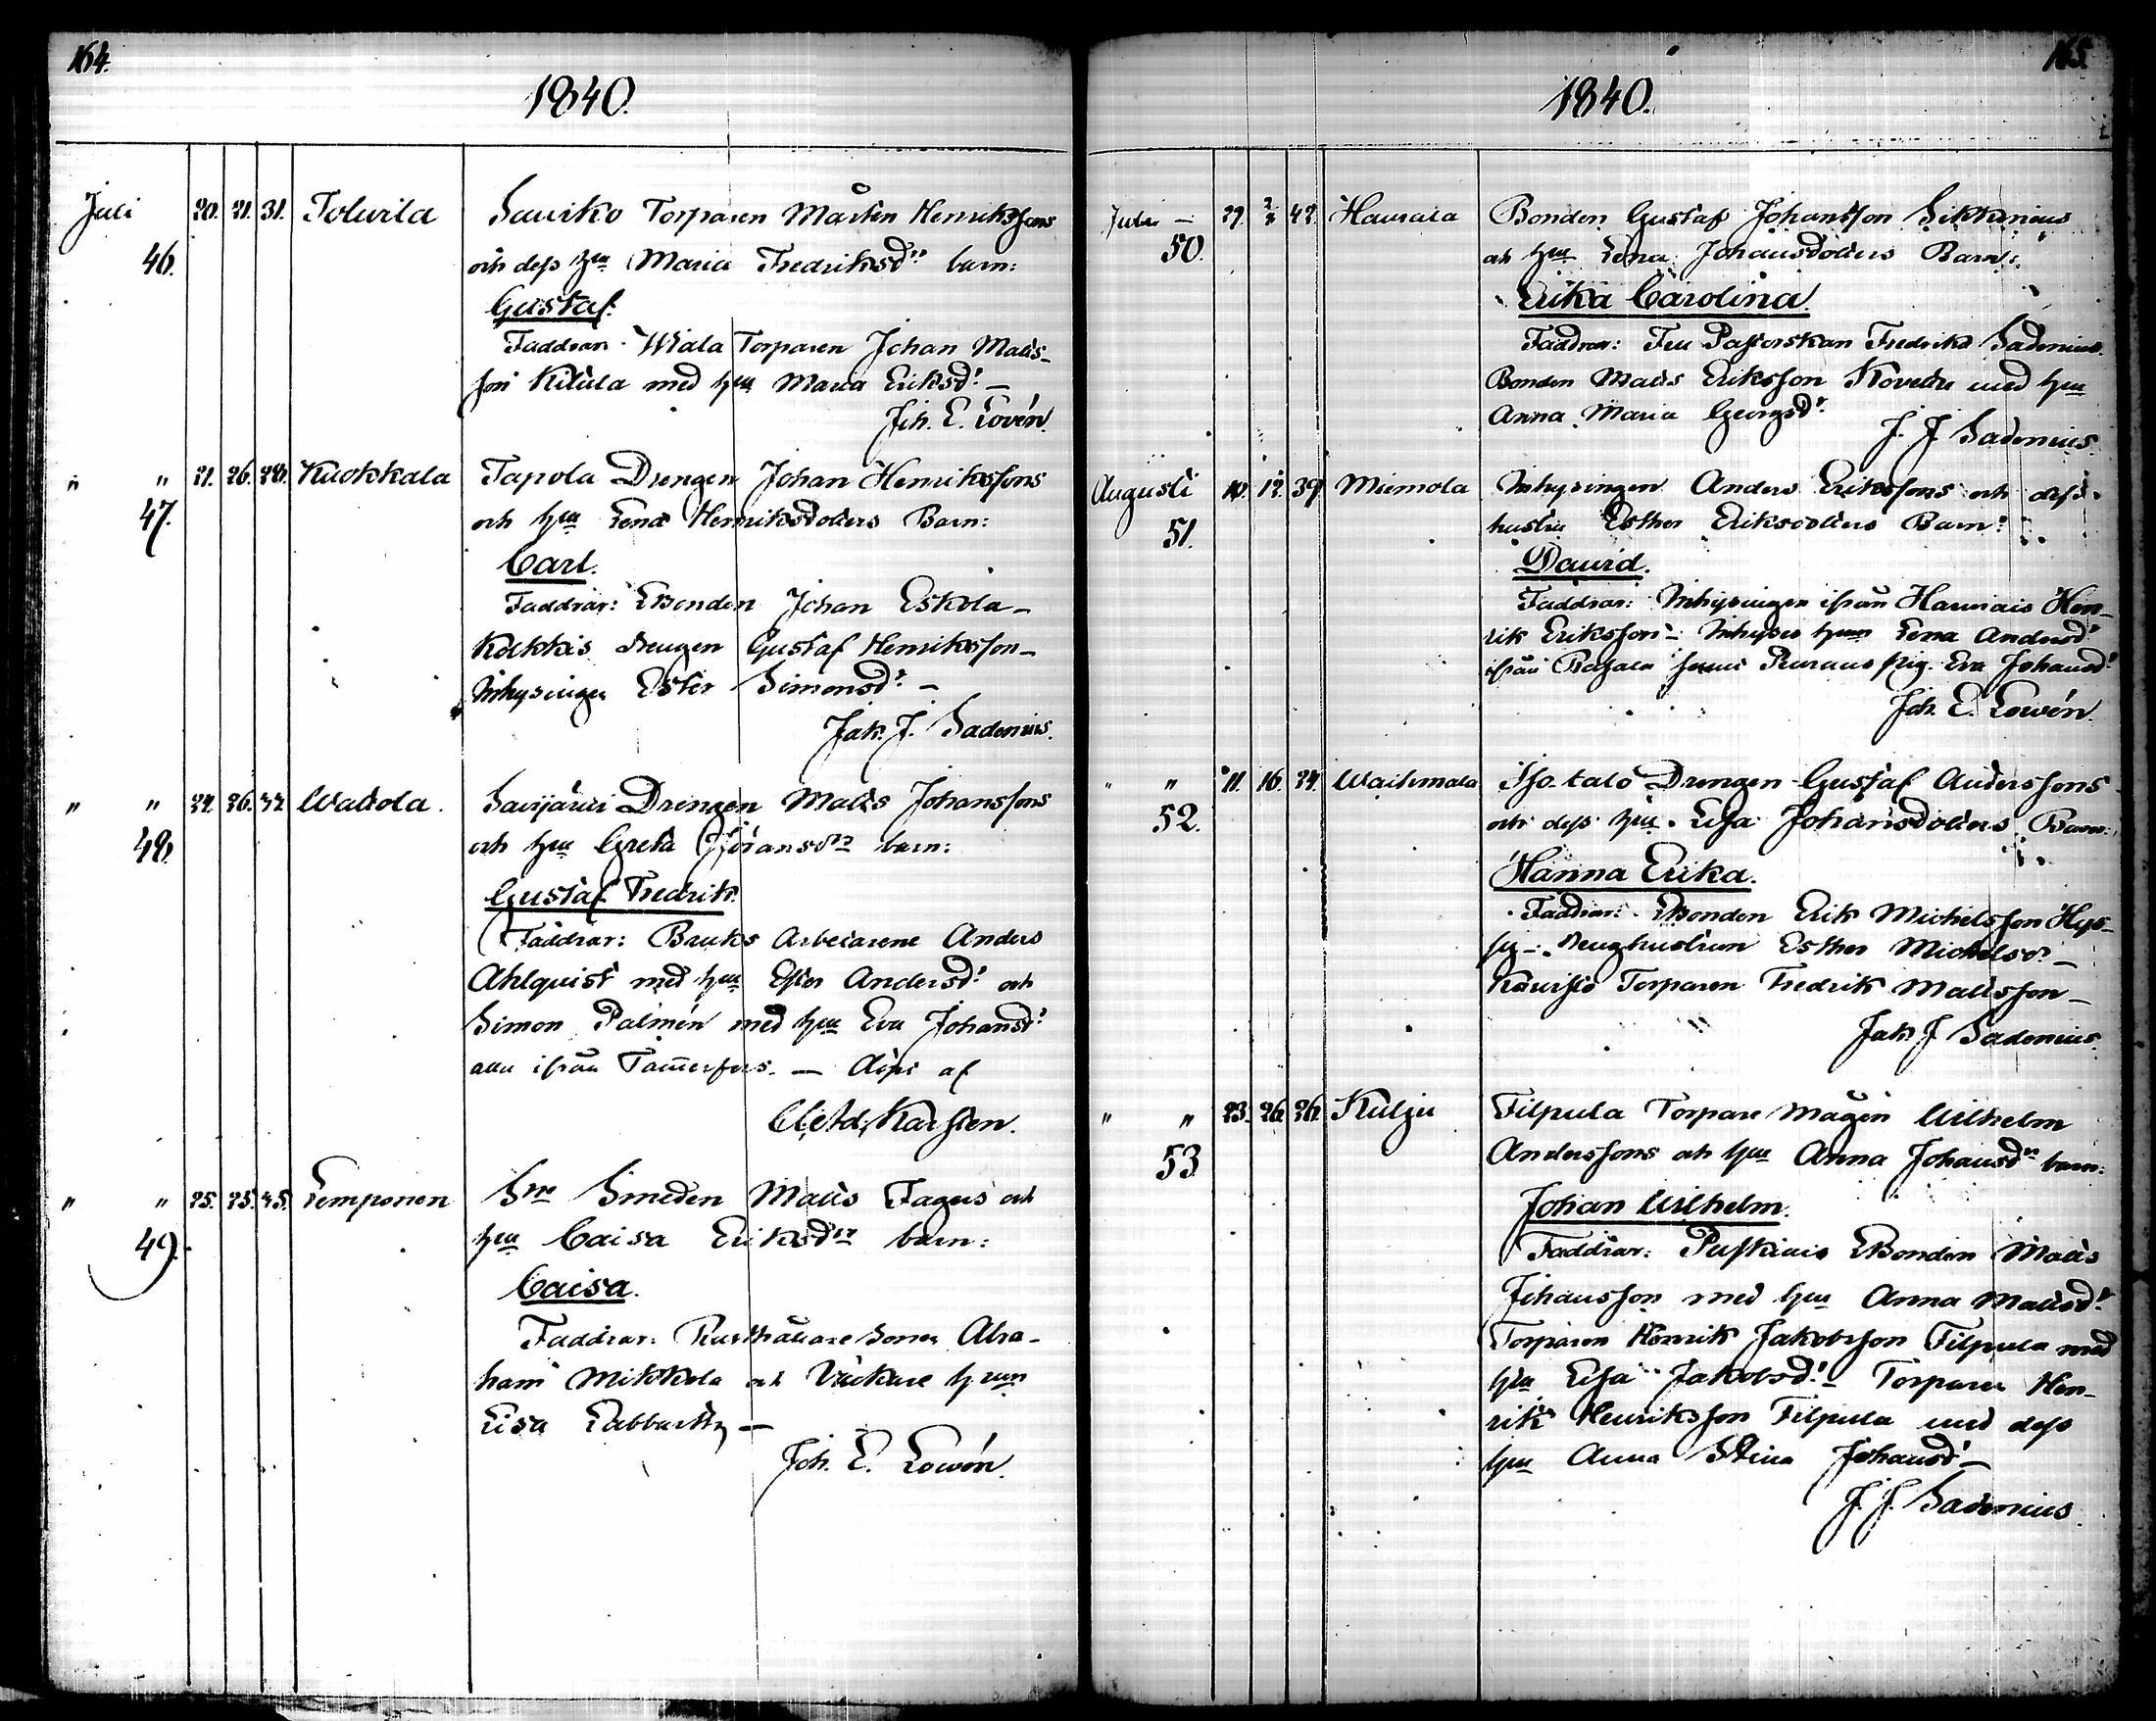 164.
1840.
Juli 20. 21. 31. Tolvila Saviko Torparen Mårten Henrikssons
46. och dess hu Maria Fredriksdrs barn:
Gustaf.
Faddrar: Wiala Torparen Johan Matts-
son Kitula med hu Maria Eriksdr —
Joh. E. Lovén.
" " 21. 26. 28. Kuokkala Tapola Drengen Johan Henrikssons
47. och hu Lena Henriksdotters Barn:
Carl.
Faddrar: Bonden Johan Eskola —
Kakkis drengen Gustaf Henriksson —
Inhysingen Ester Simonsdr —
Jak. J. Sadenius.
" " 24. 26. Savijärvi Drengen Matts Johanssons
48. och hu Greta Göransdr barn:
Gustaf Fredrik.
Faddrar: Bruks Arbetarene Anders
Ahlquist med hu Ester Andersdr och
Simon Palmén med hu Eva Johansdr
alla ifrån Tammerfors. — Döpt af
Karsten.
" " 25. 25. 45. Lemponen Smeden Matts Fagers och
49. hu Caisa Eriksdrs barn:
Caisa.
Faddrar: Rusthållare Sonen Abra-
ham Mikkola och Väckare hun
Lisa —
Joh. E. Lowén.
165.
1840.
Julii — 29. 2/8 42. Haurala Bonden Gustaf Johansson
50. och hu Lena Johansdotters Barn:
Erika Carolina.
Faddrar: Fru Pastorskan Fredrika Sadenius.
Bonden Matts Eriksson med hu
Anna Maria Georgsdr
J. J. Sadenius.
Augusti 10. 12. 39. Miemola Inhysingen Anders Erikssons och dess
51. hustru Esther Eriksdotters Barn:
David.
Faddrar: Inhysingen ifrån Hen-
rik Eriksson — Inhyses hun Lena Andersdr
ifrån pig. Eva Johansdr
Joh. E. Lowén.
" " 11. 16. 24. Waihmala Iso-talo Drengen Gustaf Anderssons
52. och dess hu Lisa Johansdotters Barn:
Hanna Erika.
Faddrar: Bonden Erik Michelsson Hys-
sy — drenghustrun Esther Michelsdr —
Torparen Fredrik Mattsson —
Jak J Sadenius.
" " 23. 26. 26. Kulju Filpula Torpare Mågen Wilhelm
53 Anderssons och hu Anna Johansdrs barn:
Johan Wilhelm.
Faddrar: Bonden Matts
Johansson med hu Anna Mattsdr
Torparen Henrik Jakobsson Filpula med
hu Lisa Jakobsdr — Torparen Hen-
rik Henriksson Filpula med dess
hu Anna Stina Johansdr —
J. J. Sadenius.